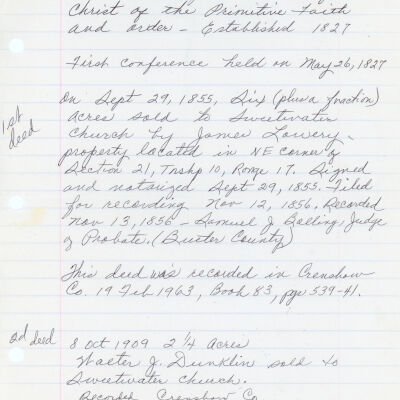 Christ of the Primitive Faith
and order - Established 1827
First conference held on May 26, 1827
1st
deed
On Sept 29, 1855, Six (plus a fraction)
acres sold to Sweetwater
Church by James Lowery.
property located in NE corner of
Section 21, Tnshp 10, Range 17. Signed
and notarized Sept 29, 1855. Filed
for recording Nov 12, 1856. Recorded
Nov 13, 1856 - Samuel J Bolling Judge
of Probate. (Butler County)
This deed was recorded in Crenshaw
Co. 19 Feb 1963, Book 83, pgs 539-41.
2d deed
8 Oct 1909 2 1/4 Acres
Walter J. Dunklin sold to
Sweetwater Church.
Recorded Crenshaw Co